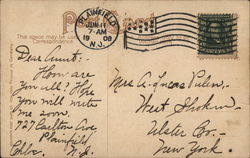 Post Card
PLAINFIELD
JUN 11
7-AM
1908
N.J.
This space may be used for
Correspondence
Dear Aunt:-
How are
you all? Hope
you will write
me soon.
727 Carlton Ave
Plainfield
N.J.
Mrs A. Lucas
West Shokan
Ulster Co.-
New York.